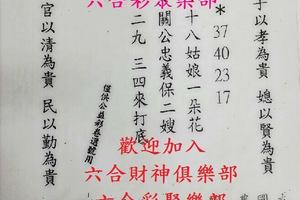 六合彩聚樂部
子以孝為貴 媳以賢為貴
*
37
40
23
17
十八姑娘一朵花
關公忠義保二嫂
二九 三四來打底
僅供公益彩卷選號用
官以清為貴 民以勤為貴
歡迎加入
六合財神俱樂部
六合彩聚樂部